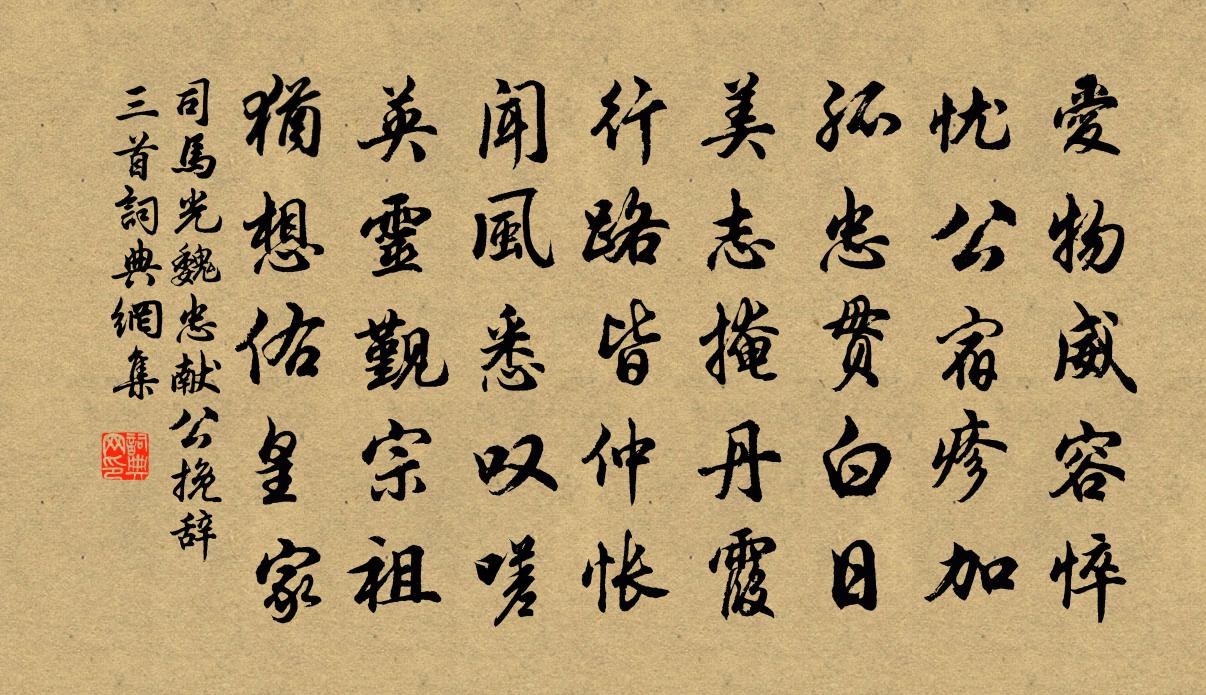 愛物威容悴
忧公宿疹加
孤忠贯白日
美志掩丹霞
行路皆仲怅
闻風悉叹嗟
英靈觐宗祖
猶想佑皇家
司馬光魏忠献公挽辞
三首詞典網集
詞典网印